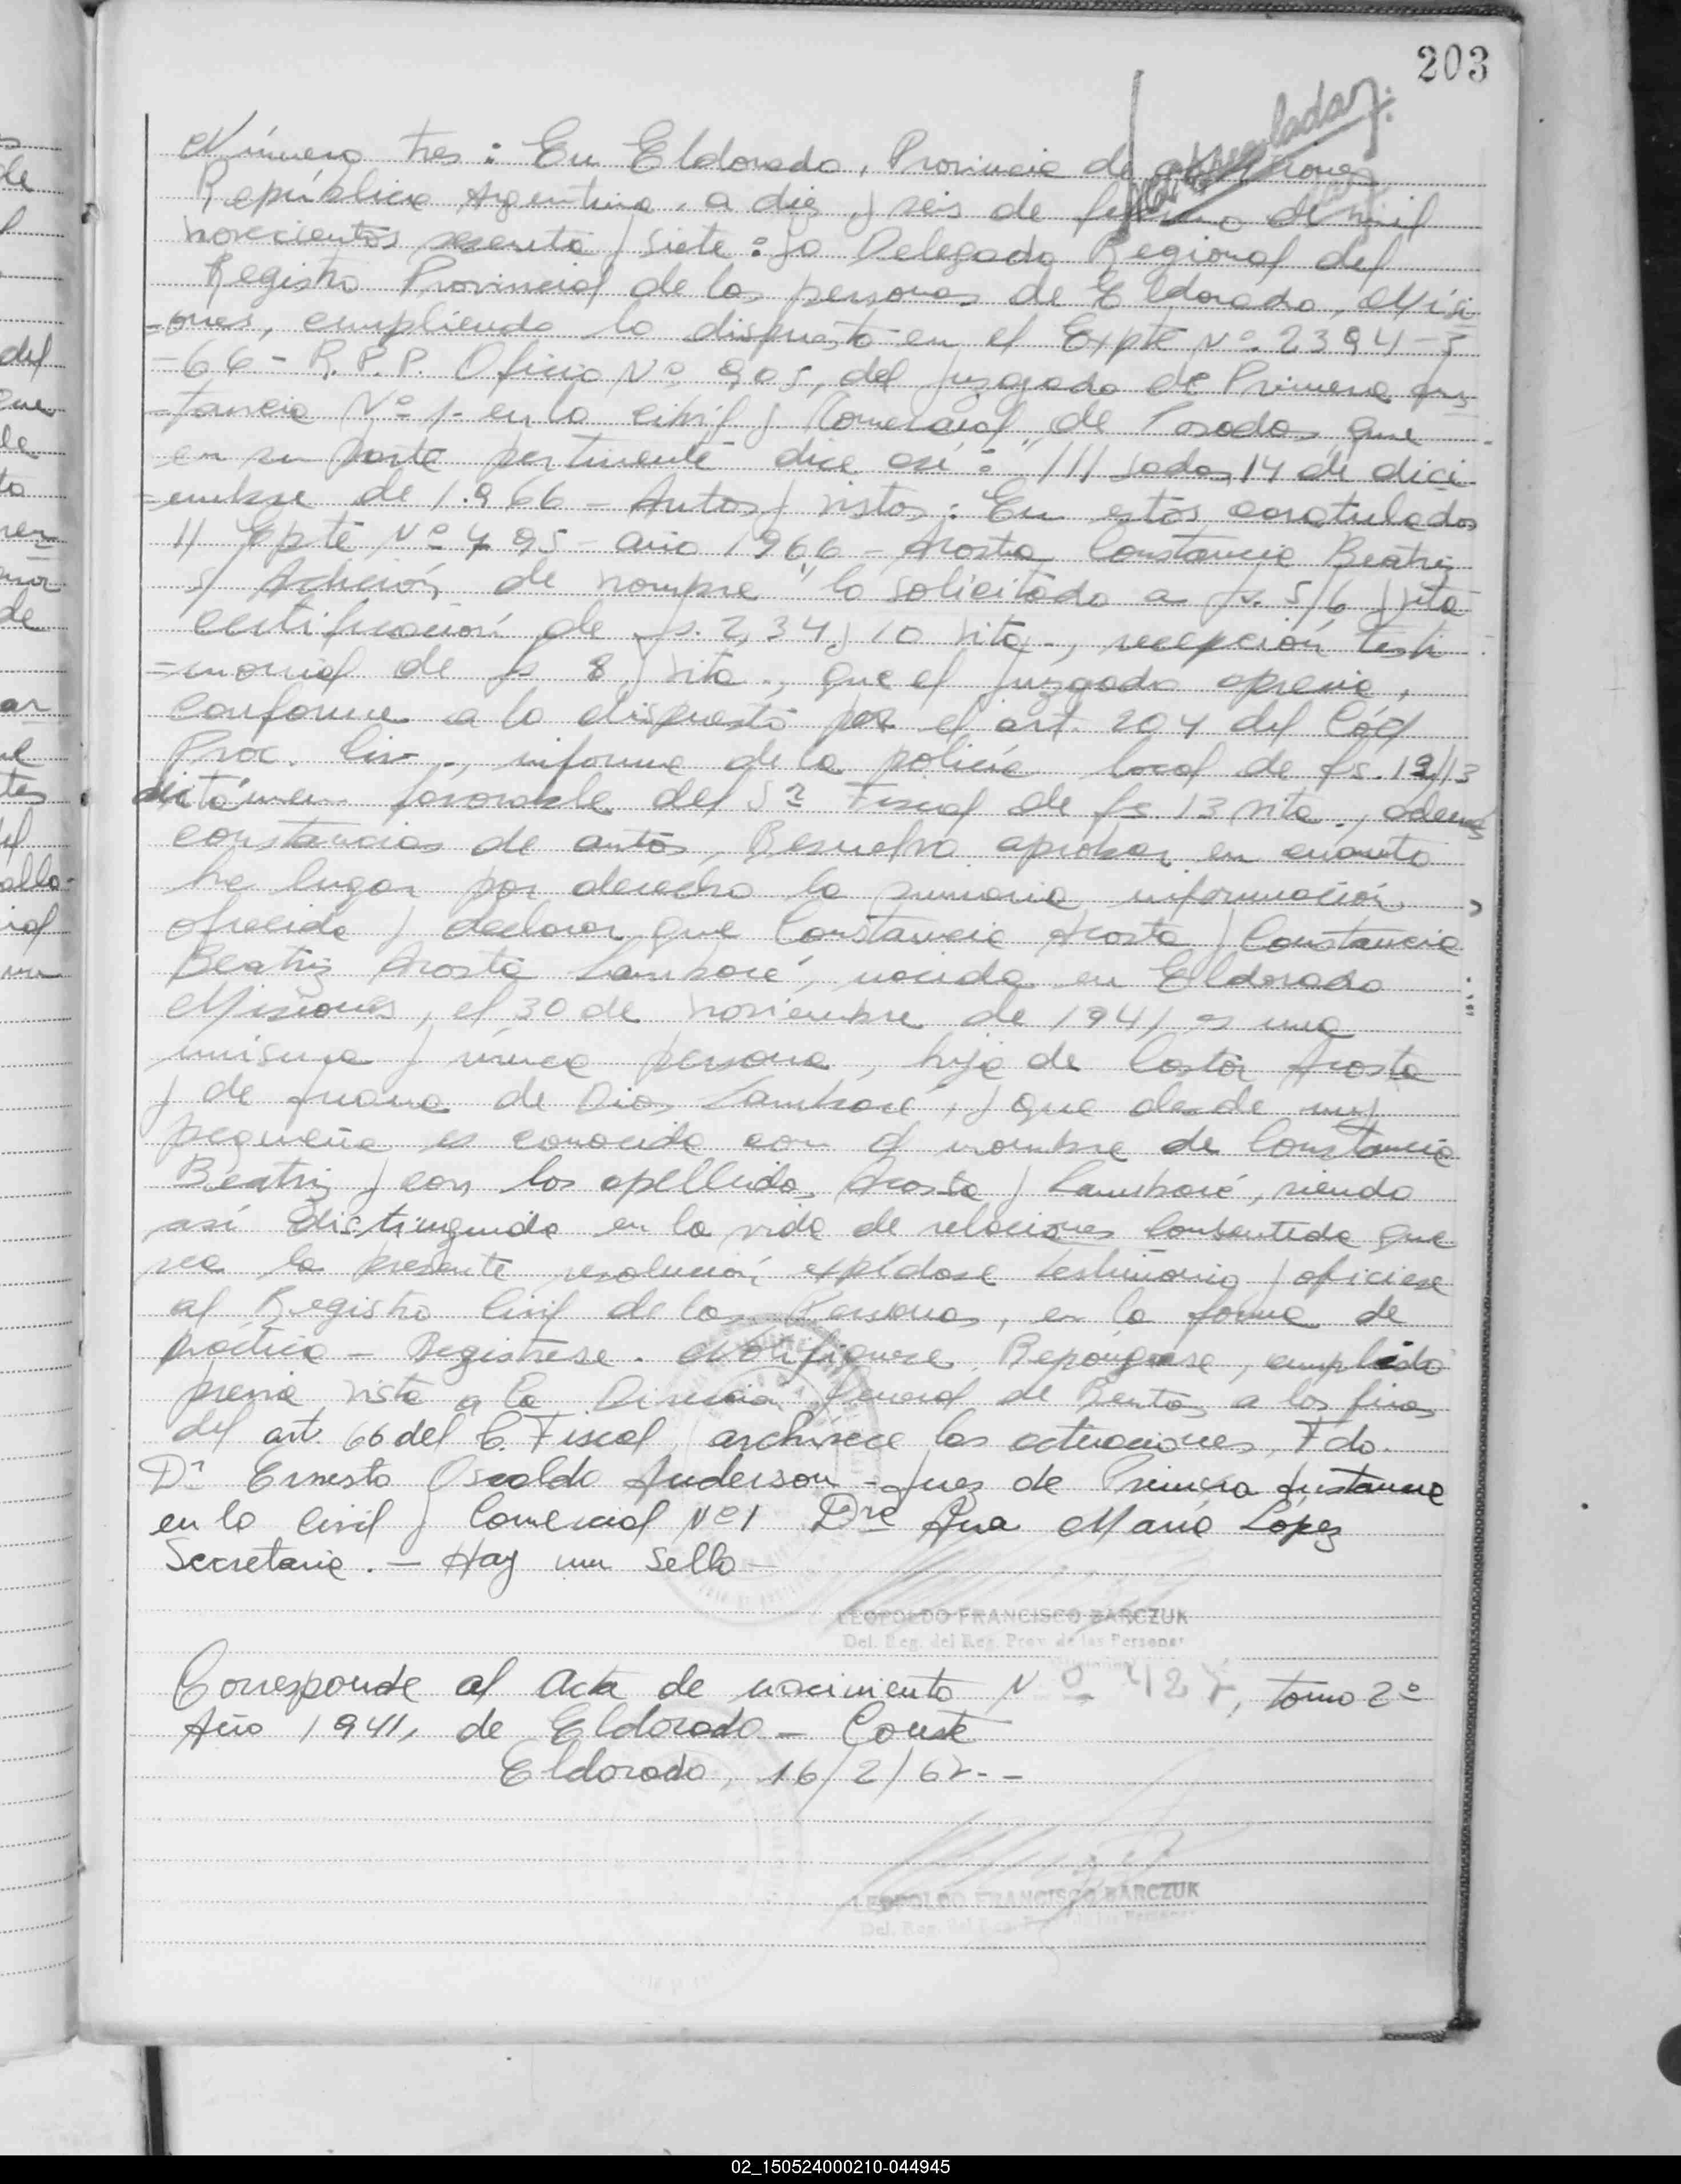 203
Número tres: En Eldorado, Provincia de Misiones
República Argentina, a diez y seis de febrero de mil
novecientos sesenta y siete: yo Delegado Regional del
Registro Provincial de las personas de Eldorado, Misi-
=ones, cumpliendo lo dispuesto en el Expte Nº 2394-
-66- R.P.P. Oficio Nº 905, del Juzgado de Primera Ins-
=tancia Nº 1- en lo civil y Comercial, de Posadas, que
en su parte pertinente dice así: "///sadas, 14 de dici-
=embre de 1.966 - Autos y vistos: En estos caratulados
// Expte Nº 495 - año 1966 - Acosta Constancia Beatriz
s/ Adición de nombre" lo solicitado a fs. 5/6 y vta
certificación de fs. 2, 3 4 y 10 vta., recepción testi-
=monial de fs 8 y vta., que el Juzgado aprecia,
conforme a lo dispuesto por el art. 204 del Cód
Proc. Civ., informe de la policía local de fs. 12/13
dictámen favorable del Sr Fiscal de fs. 13 vta., además
constancias de autos, Resuelvo aprobar en cuanto
ha lugar por derecho la sumaria información
ofrecida y declarar que Constancia Acosta y Constancia
Beatriz Acosta Lambaré, nacida en Eldorado
Misiones, el 30 de noviembre de 1941 es una
misma y única persona, hija de Castor Acosta
y de Juana de Dios Lambaré, y que desde muy
pequeña es conocida con el nombre de Constancia
Beatriz y con los apellidos, Acosta y Lambaré, siendo
así distinguida en la vida de relaciones Consentida que
sea la presente resolución, expídase testimonio y ofíciese
al Registro Civil de las Personas, en la forma de
práctica - Regístrese. Notifíquese, Repóngase, cumplido
previa vista a la Dirección General de Rentas, a los fines
del art. 66 del C. Fiscal, archívece las actuaciones, Fdo.
Dr Ernesto Osvaldo Anderson - Juez de Primera Instancia
en lo Civil y Comercial Nº 1 Dra Ana María López
Secretaria. - Hay un sello -
LEOPOLDO FRANCISCO BARCZUK
Del. Reg. del Reg. Prov. de las Personas
Corresponde al Acta de nacimiento Nº 427, tomo 2º
Año 1941, de Eldorado - Conste
Eldorado, 16/2/67.-
LEOPOLDO FRANCISCO BARCZUK
Del. Reg. del Reg. Prov. de las Personas
02_150524000210-044945